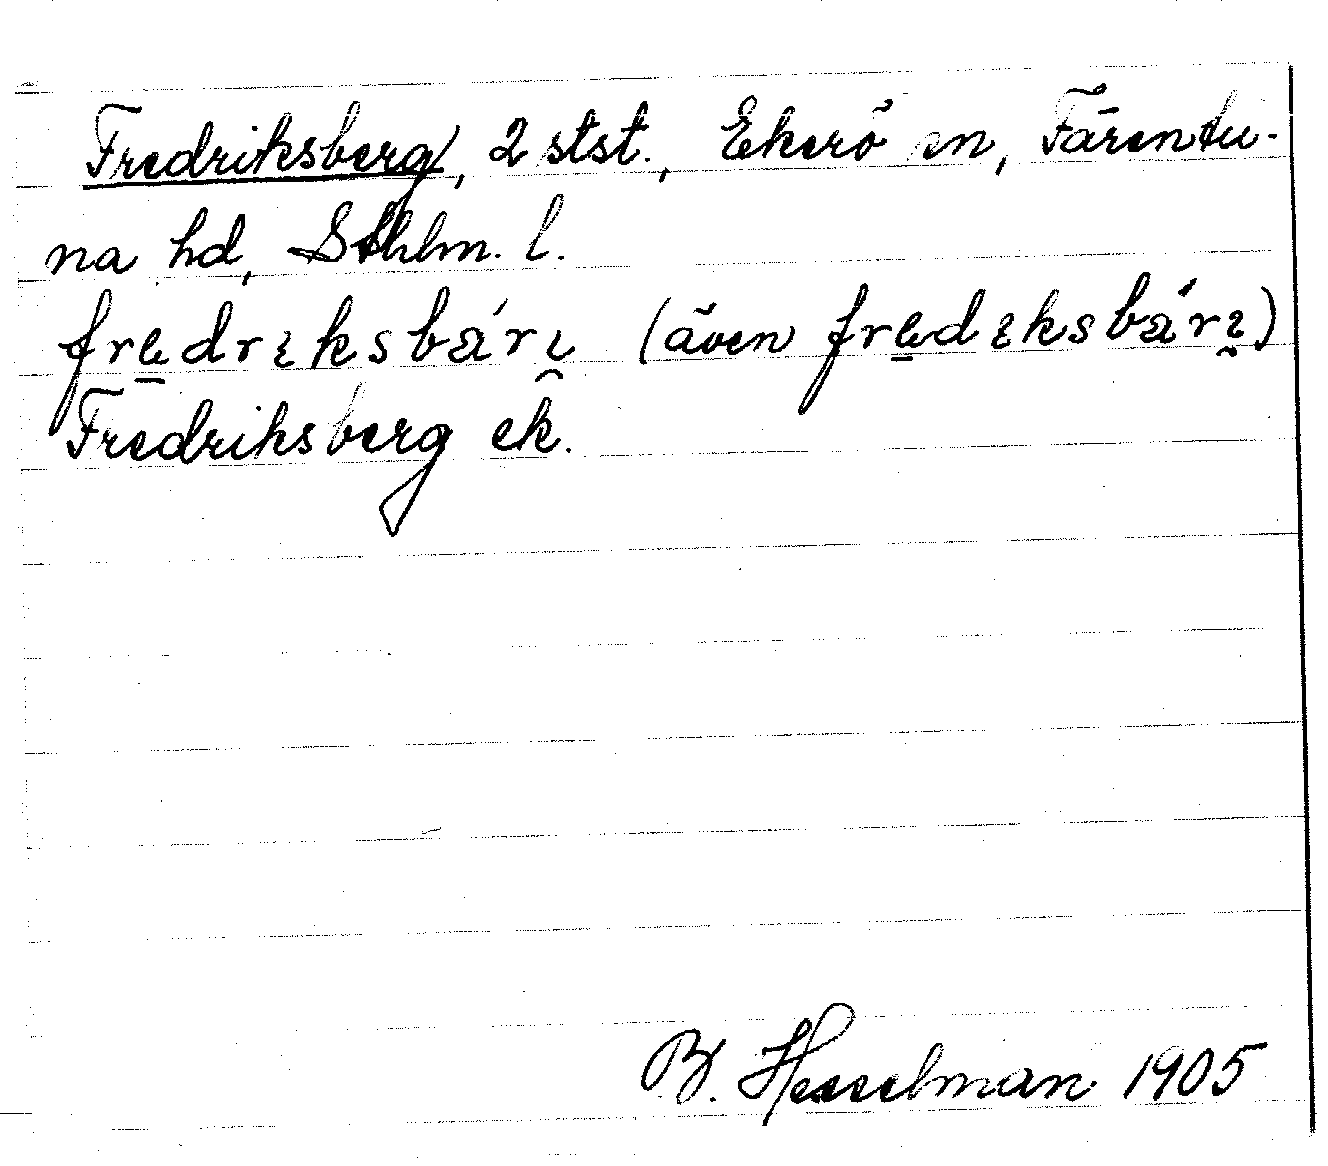 Fredriksberg, 2 stst., Ekerö sn, Färentu-
na hd, Sthlm. l.
fredrıksbä́rı (även fredıksbä́rı)
Fredriksberg ek.
B. Hesselman 1905